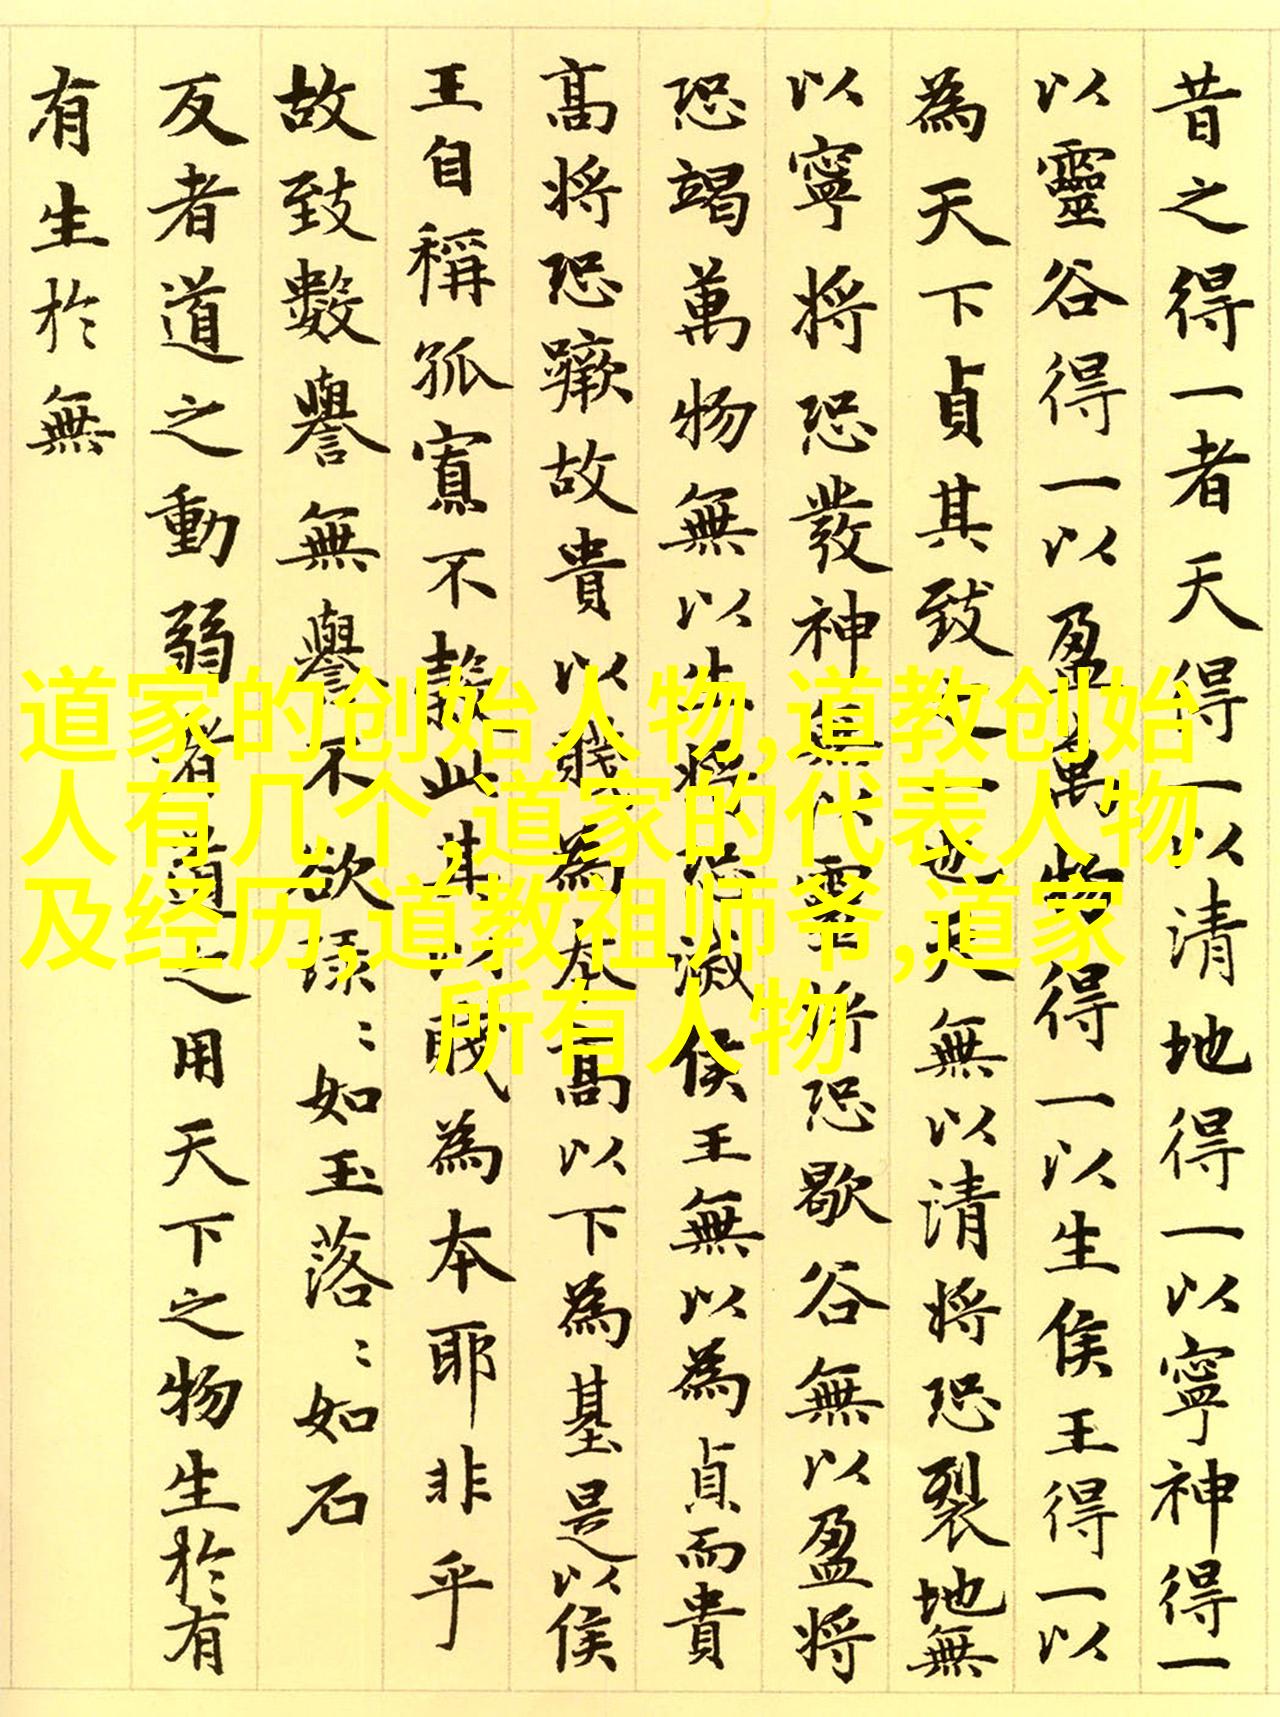 昔之得一者天得一以清地得一以寧神得一
以靈谷得一以盈萬物得一以生侯王得一以
為天下貞其致之一也天無以清将恐裂地無
以寧将恐發神無以靈将恐歇谷無以盈将
恐竭萬物無以生将恐滅侯王無以為貞而貴
高将恐蹶故貴以賤為本高以下為基是以侯
王自稱孤寡不穀此其以賤為本耶非乎
故致數譽無譽不欲琭〻如玉落〻如石
反者道之動弱者道之用天下之物生於有
有生於無
道家的创始人物,道教创始
人有几个,道家的代表人物
及经历,道教祖师爷,道家
所有人物